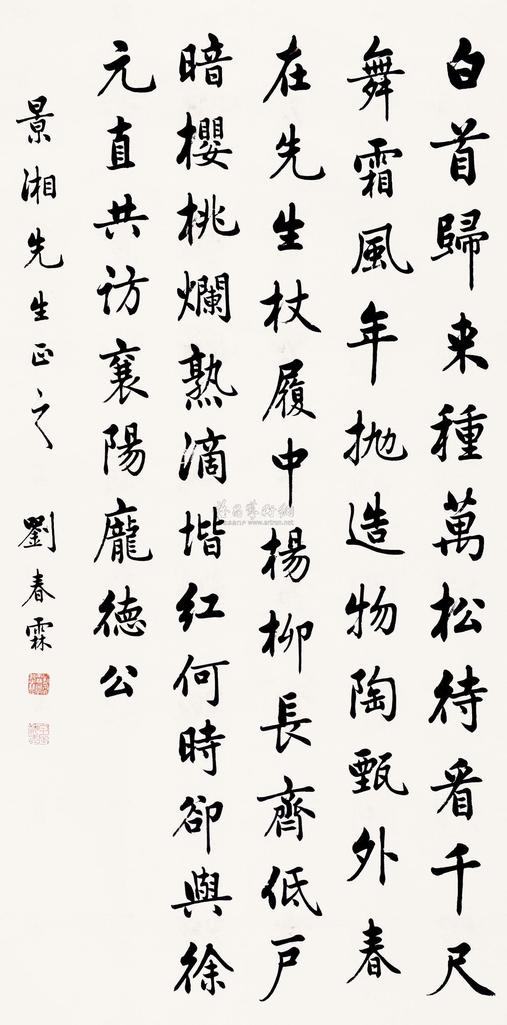 白首歸来種萬松待看千尺
舞霜風年抛造物陶甄外春
在先生杖履中楊柳長齊低戶
暗櫻桃爛熟滴堦红何時卻與徐
元直共访襄陽龐德公
景湘先生正之
劉春霖